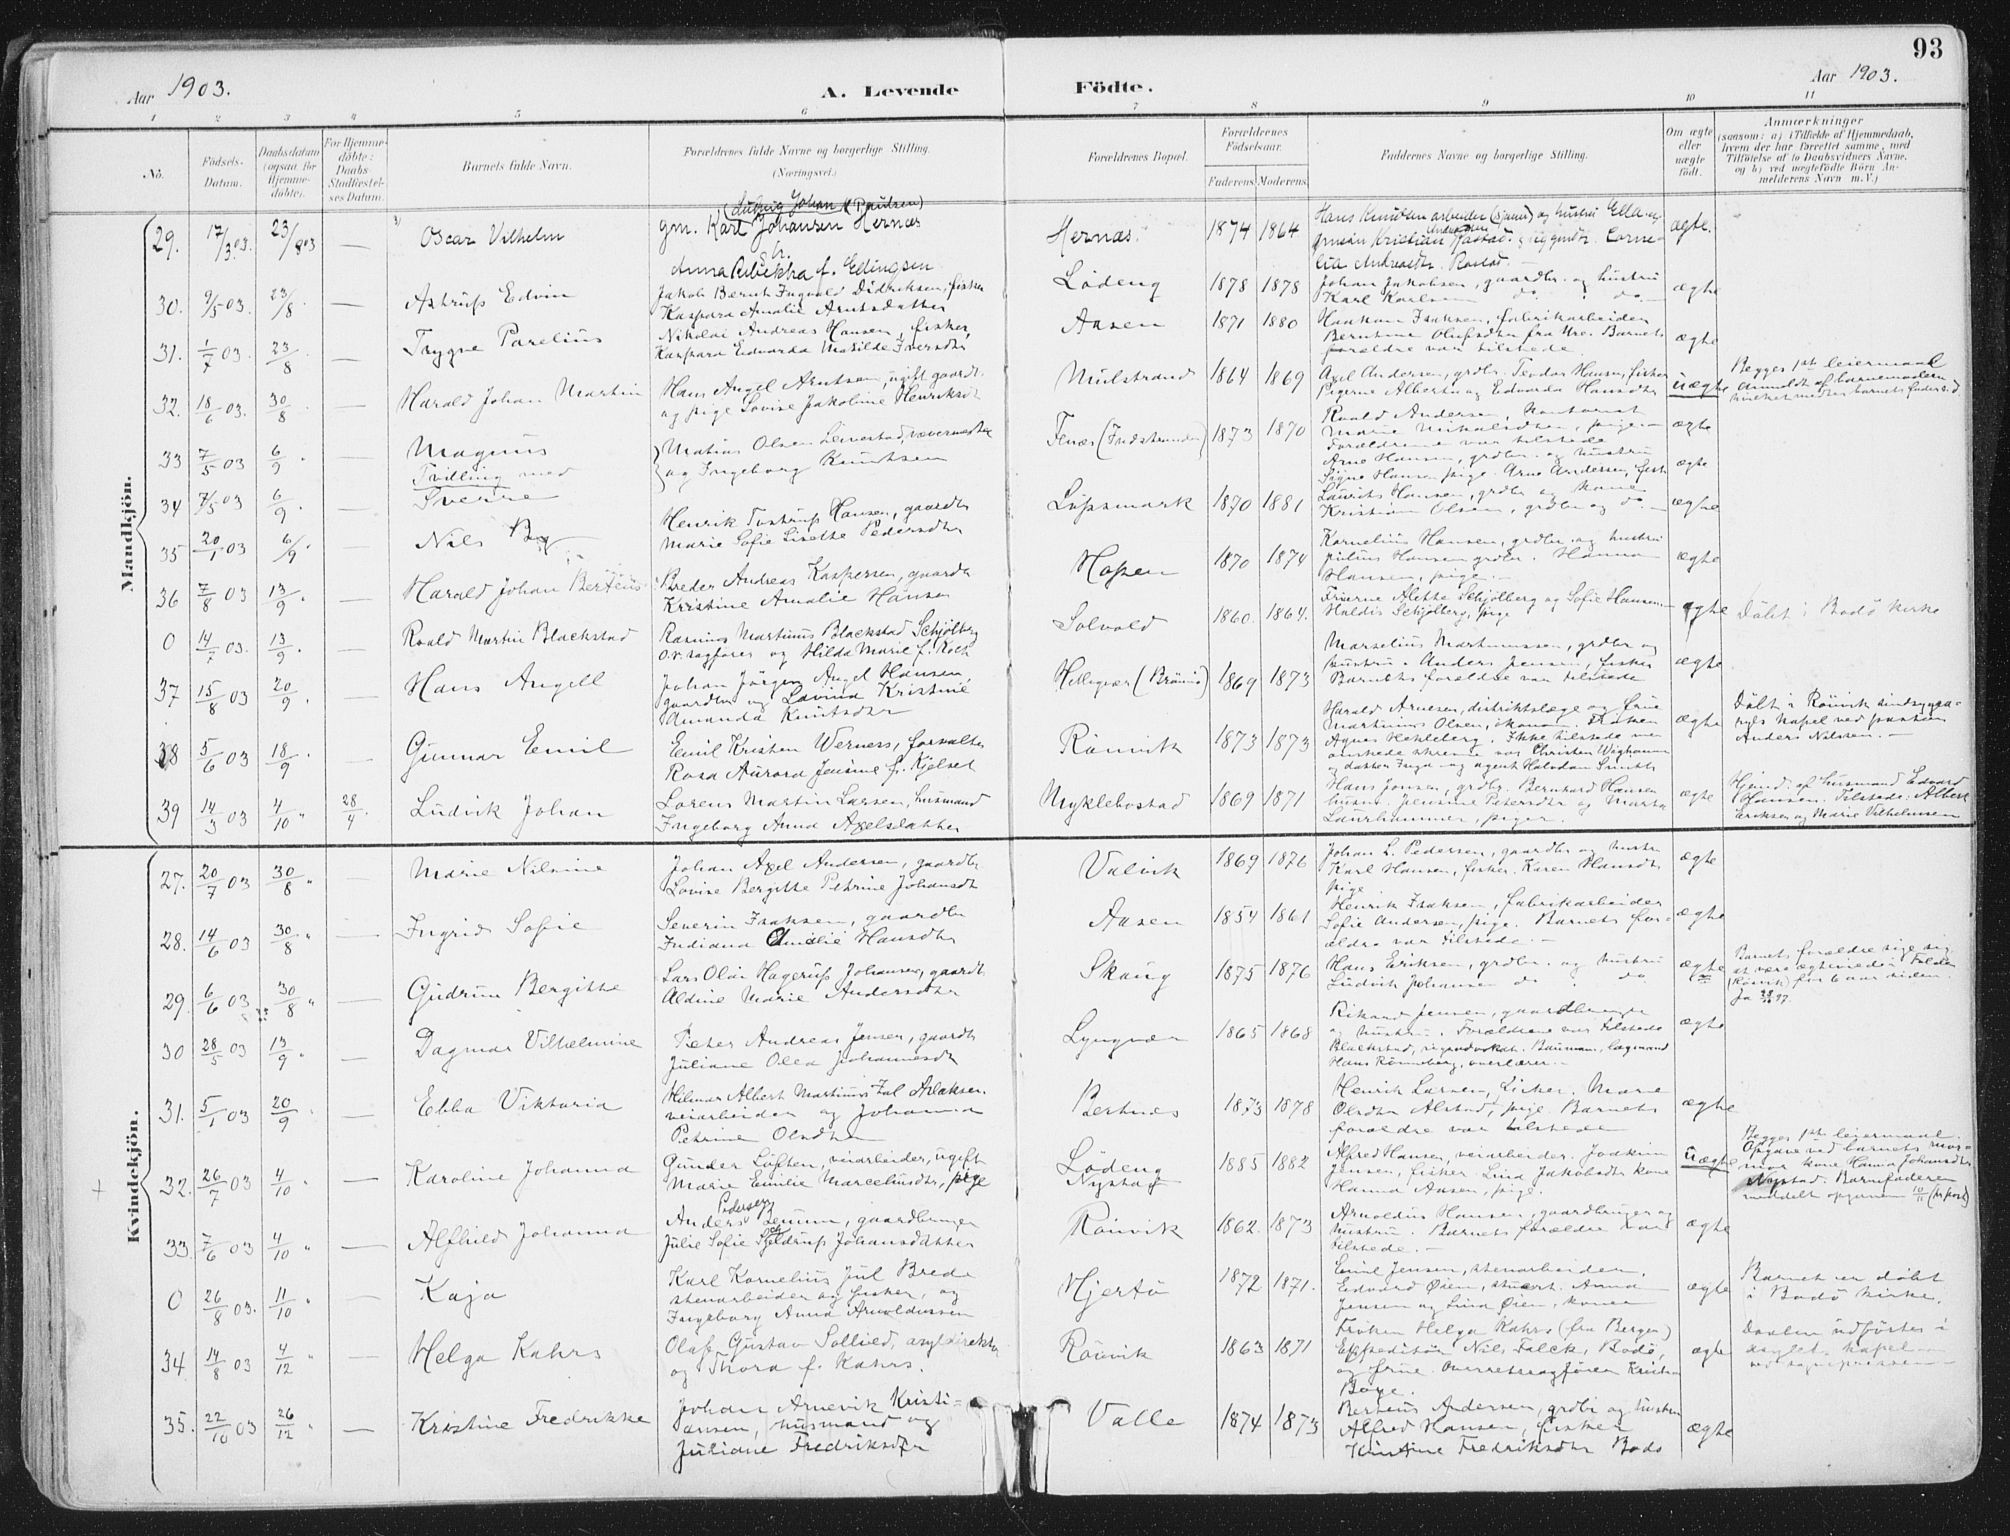 93
Aar 1903.
A. Levende
Födte.
Aar 1903.
1 2 3 4 5 6 7 8 9 10 11
No.
Födsels-
Datum.
Daabsdatum
(ogsaa for
Hjemme-
döbte).
For Hjemme-
döbte:
Daabs
Stadfæstel-
ses Datum.
Barnets fulde Navn.
Forældrenes fulde Navne og borgerlige Stilling.
(Næringsvei.)
Forældrenes Bopæl.
Forældrenes
Födselsaar.
Faderens. Moderens.
Faddernes Navne og borgerlige Stilling.
Om ægte
eller
uægte
födt.
Anmærkninger
(saasom: a) i Tilfælde af Hjemmedaab,
hvem der har forrettet samme, med
Tilföielse af to Daabsvidners Navne,
og b) ved uægtefödte Börn An-
melderens Navn m. V.)
Mandkjön.
29. 17/3 03. 23/8 03 — Oscar Vilhelm
(Ludvig Johan Knudsen)
gm. Karl Johansen Hernæs
Anna Rebekka f. Edingsen
Hernæs. 1874 1864
Hans Knudsen arbeider og hustru Ella og
Kristian Rastad
ægte.
30. 9/5 03. 23/8 — Astrup Edvin
Jakob Bernt Ingvald Didriksen, fisker
Kaspara Amalie Arntsdatter
Løding 1878 1878
Johan Jakobsen, gaardbr. og hustru
Karl Karlsen do. do.
ægte
31. 1/7 03. 23/8 — Trygve Parelius
Nikolai Andreas Hansen, fisker,
Kaspara Edvarda Matilde Iversdtr
Aasen 1871 1880
Haakon Isaksen, fabrikarbeider
Berntine Olufsdtr fra Barnets
forældre var tilstede.
ægte
32. 18/6 03. 30/8 — Harald Johan Martin
Hans Angel Arntsen, ugift gaardbr.
og pige Lovise Jakobine Henriksdtr
Mulstrand 1864 1869
Axel Andersen, grdbr. Teodor Hansen, fisker
Pigerne Alberta og Edvarda Hansdtr
uægte
Begges 1ste leiermaal
Anmeldt af barnemoderen
33 7/5 03 6/9 — Magnus
Tvilling med
Matias Olsen
og Ingeborg Knudtsen
1873 1870
Roald Andersen, kontorist
Marie Nikolaisen, pige
Forældrene var tilstede
ægte
34 7/5 03 6/9 — Sverre
Arne Hansen, grdbr. og hustru
Signe Hansen, pige. Arne Andersen, fisk.
ægte
35 20/1 03 6/9 — Nils By
Henrik Tostrup Hansen, gaardbr
Marie Sofie Lisette Pedersdtr
Løpsmark 1870 1881
Laurits Hansen, grdbr og kone
Kristian Olsen, grdbr og do. —
ægte
36 7/8 03 13/9 — Harald Johan Berteus
Breder Andreas Kaspersen, gaardbr
Kristine Amalie Hansen
Hopen 1870 1874
Kornelius Hansen, grdbr. og hustru
Julius Hansen grdbr. Hanna
Hansen, pige. —
ægte
0 14/7 03. 13/9 — Roald Martin Blackstad
Rasmus Martinus Blackstad Schjölberg
o.r.sagförer og Hilda Marie f. Koch
Solvold 1860. 1864.
Fruerne Alette Schjölberg og Sofie Hansen
Haldis Schjölberg, pige
ægte
Döbt i Bodö kirke
37 15/8 03 20/9 — Hans Angell
Johan Jörgen Angel Hansen,
gaardbr og Lavina Kristine
Amanda Knutsdtr
Helligvær (Bröniö) 1869 1873
Marselius Martinussen, grdbr og
hustru. Anders Jensen, fisker
Barnets forældre var tilstede
ægte
38 5/6 03 18/9 — Gunnar Emil
Emil Kristen Werness, forvalter
Rosa Aurora Jensine f. Kjelset
Rönvik 1873 1873
Harald Arnesen, distriktslæge og frue
Martinus Olsen, ökonom. Fröken
Agnes Hekleberg. Ikke tilstede men
önskede skrevne var Christen Wighamn
og datter Inga og agent Halvdan
ægte
Döbt i Rönvik sindssyge-
asyls kapel ved pastor
Anders Nilssen. —
39 14/3 03 4/10 28/4. Ludvik Johan
Lorens Martin Larsen, husmand
Ingeborg Anna Axelsdatter
Myklebostad 1869 1871
Hans Jonsen, grdbr. Bernhard Hansen
husm. Jensine Petersdtr og Marta
Laurhammer, piger.
ægte
Hjmd. af husmand Edvard
Hansen. Tilstede: Albert
Eriksen og Marie Vilhelmsen
Kvindekjön.
27. 20/7 03 30/8 — Marie Nilsine
Johan Axel Andersen, gaardbr
Lovise Bergitte Petrine Johansdtr
Valvik 1869 1876
Johan L. Pedersen, gaardbr og hustru
Karl Hansen, fisker. Karen Hansdtr
pige
ægte
28. 14/6 03 30/8 — Ingrid Sofie
Severin Isaksen, gaardbr
Indiana Amalie Hansdtr
Aasen 1854 1861
Henrik Isaksen, fabrikarbeider
Sofie Andersen, pige. Barnets for-
ældre var tilstede. —
ægte
29. 6/6 03 30/8 — Gudrun Bergitte
Lars Olai Hagerup Johansen, gaardbr
Aldine Marie Andersdtr
Skaug 1875 1876
Hans Eriksen, grdbr. og hustru
Ludvik Johansen do do
ægte
Barnets forældre sige sig
at være ægteviede i Folden
(Rönvik) for 6 aar siden.
30 28/5 03 13/9 — Dagmar Vilhelmine
Peter Andreas Jensen, gaardbr
Juliane Olea Johannesdtr
Lyngvær 1865 1868
Rikard Jensen, gaardbruger
og hustru. Forældrene var tilstede
Blackstad, sagadvokat. Bauman, lagmand
Hans Rönneberg, overlærer. —
ægte
31. 5/1 03 20/9 — Ebba Viktoria
Hilmar Albert Martinus Aslaksen.
veiarbeider og Johanna
Petrine Olsdtr
Bertnes 1873 1878
Henrik Larsen, fisker. Marie
Olsdtr Alstad, pige. Barnets
forældre var tilstede
ægte
+ 32. 26/7 03 4/10 — Karoline Johanna
Gunder Loften, veiarbeider, ugift
Marie Emilie Marcelinsdtr, pige
Löding
Nystad 1885 1882
Alfred Hansen, veiarbeider. Joakim
Jensen, fisker. Lina Jakobsdtr kone
Hanna Aasen, pige.
uægte
Begges 1ste leiermaal.
Opgave ved barnets mor-
mor kone Hanna Johansdtr
Nystad. Barnefaderen
meddelt opgaven 10/11 (pr post)
33. 7/6 03 4/10 — Alfhild Johanna
Anders Pedersen Benum, gaardbruger
Julie Sofie Sjeldrup Johansdatter
Rönvik 1862. 1873
Arnoldus Hansen, gaardbruger og
hustru. Barnets forældre var
tilstede. —
ægte
0 26/8 03. 11/10 — Kaja
Karl Kornelius Jul Brede
stenarbeider og fisker, og
Ingeborg Anna Arnoldussen
Hjertö 1872 1871.
Emil Jensen, stenarbeider.
Edvard Öien, stuert. Anna
Jensen og Lina Öien, koner
ægte
Barnet er döbt
i Bodö kirke.
34 14/8 03 4/12 — Helga Kahrs
Olaf Gustav Sollied, asyldirektör
og Thora f. Kahrs.
Rönvik 1863 1871
Fröken Helga Kahrs (fra Bergen)
Expeditör Nils Falck, Bodö,
og frue. Overretssagförer Kristian
Boye.
ægte
Daaben udförtes i
asylets kapel
ved sognepresten —
35. 22/10 03 26/12 — Kristine Fredrikke
Johan Arnevik Kristi-
ansen, husmand og
Juliane Fredriksdtr
Valle 1874 1873
Berteus Andersen, grdbr og hustru
Alfred Hansen, fisker
Kristine Fredriksdtr Bodö
ægte